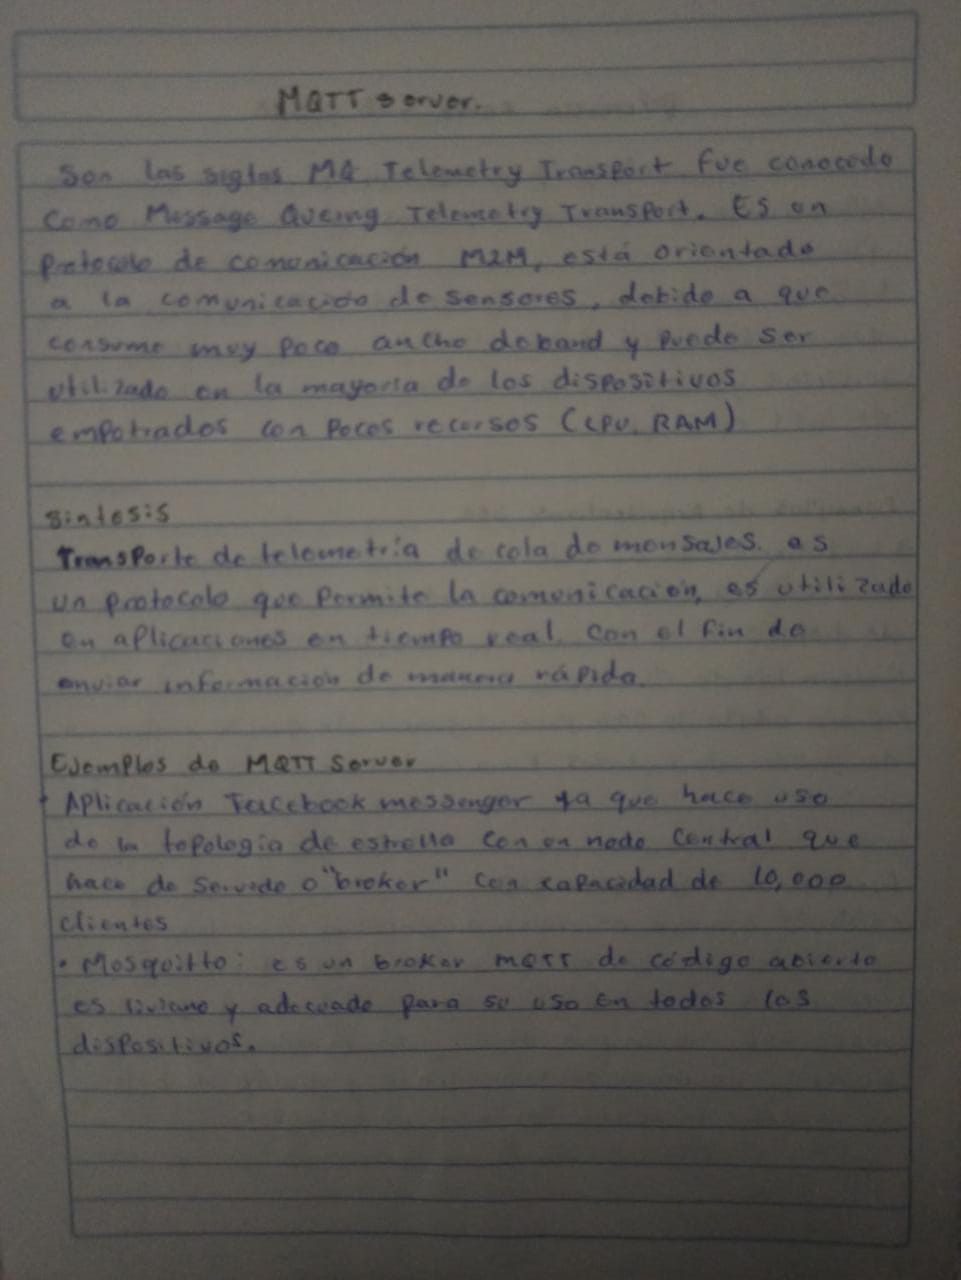 MQTT server.
Son las siglas MQ Telemetry Transport fue conocedo
como Message Queing Telemetry Transport. Es un
Protocolo de comunicación M2M, está orientado
a la comunicacido de sensores, debido a que
consume muy poco ancho deband y puede ser
utilizado en la mayoria de los dispositivos
empotrados con pocos recursos (CPU, RAM)
Sintesis
Transporte de telemetría de cola de mensajes. es
un protocolo que permite la comunicación, es utilizado
en aplicaciones en tiempo real. con el fin de
enviar información de manera rápida.
Ejemplos de MQTT Server
Aplicación Facebook messenger ya que hace uso
de la topología de estrella con un nodo central que
hace de servido o "broker" con capacidad de 10,000
clientes
• Mosquitto: es un broker MQTT de código abierto
es liviano y adecuado para su uso en todos los
dispositivos.